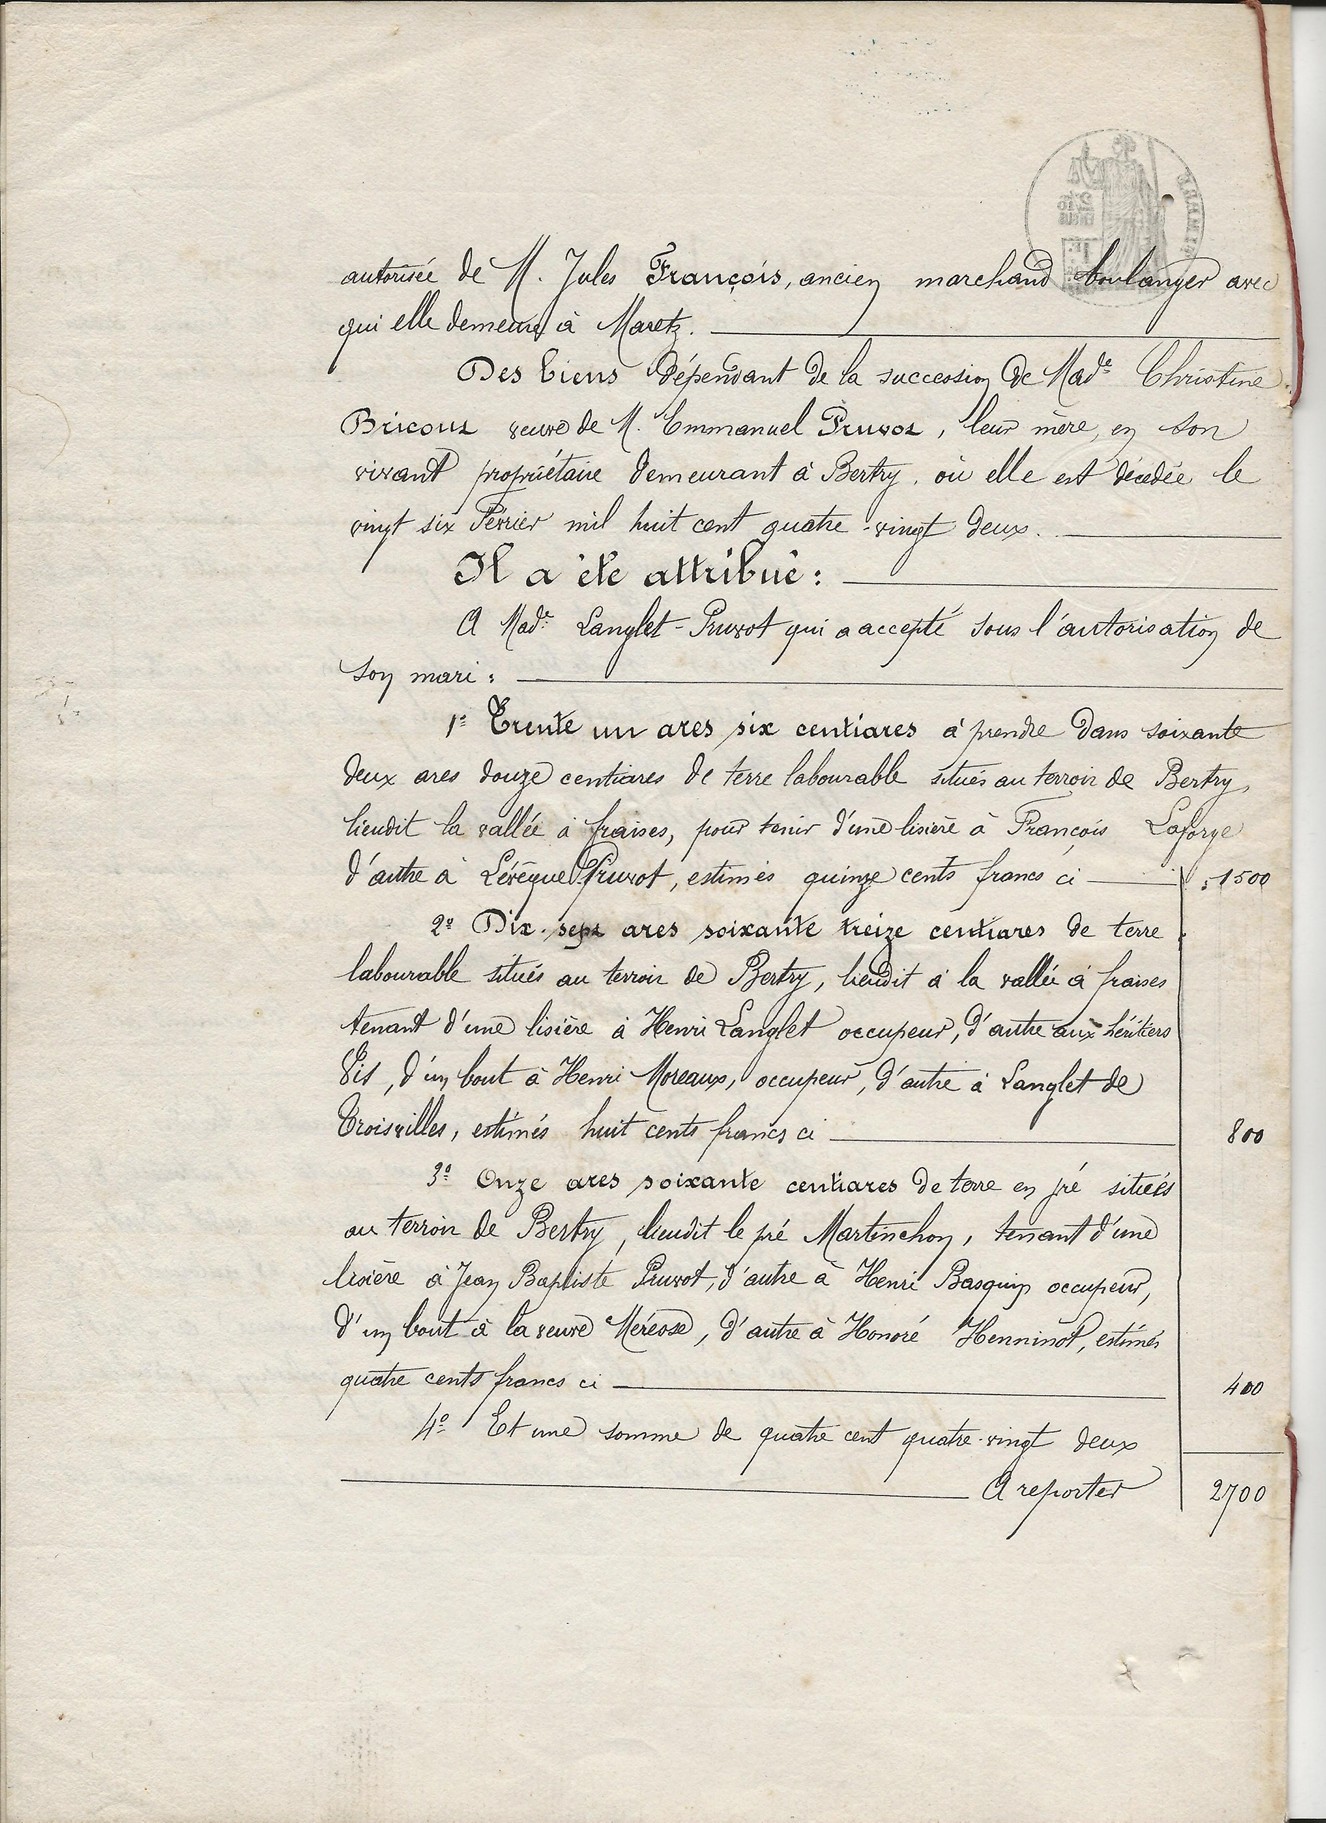 autorisée de M. Jules François, ancien marchand boulanger avec
qui elle demeure à Maretz.
Des biens dépendant de la succession de Made Christine
Bricout veuve de M. Emmanuel Pruvot, leur mère, en son
vivant propriétaire demeurant à Bertry, où elle est décédée le
vingt six Février mil huit cent quatre-vingt deux.
Il a été attribué :
A Made Langlet-Pruvot qui a accepté sous l'autorisation de
son mari :
1º Trente un ares six centiares à prendre dans soixante
deux ares douze centiares de terre labourable situés au terroir de Bertry,
lieudit la vallée à fraises, pour tenir d'une lisière à François Laforge
d'autre à Lévêque Pruvot, estimés quinze cents francs ci 1500
2º Dix-sept ares soixante treize centiares de terre
labourable situés au terroir de Bertry, lieudit à la vallée à fraises
tenant d'une lisière à Henri Langlet occupeur, d'autre aux héritiers
, d'un bout à Henri Moreaux, occupeur, d'autre à Langlet de
Troisvilles, estimés huit cents francs ci 800
3º Onze ares soixante centiares de terre en pré situés
au terroir de Bertry, lieudit le pré Martinchon, tenant d'une
lisière à Jean Baptiste Pruvot, d'autre à Henri Basquin occupeur,
d'un bout à la veuve Méresse, d'autre à Honoré Henninot, estimés
quatre cents francs ci 400
4º Et une somme de quatre cent quatre-vingt deux
A reporter 2700